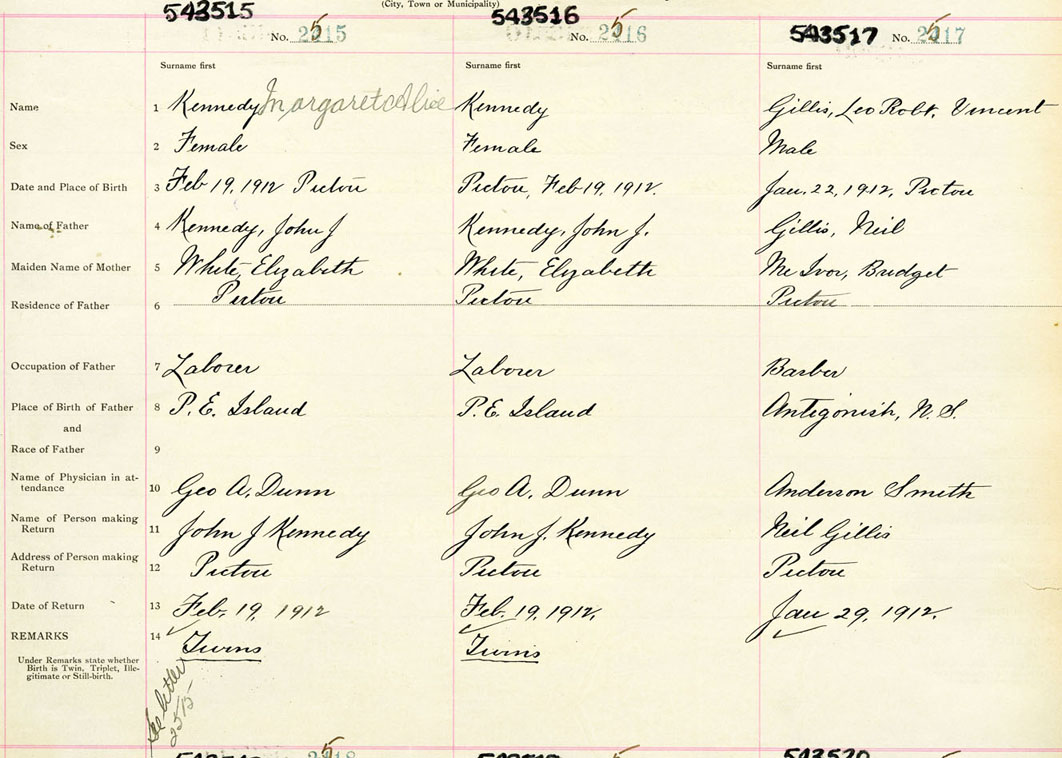 (City, Town or Municipality)
543515 543516 543517
No. 2515 No. 2516 No. 2517
Surname first Surname first Surname first
Name 1 Kennedy Margaret Alice Kennedy Gillis, Leo Robt. Vincent
Sex 2 Female Female Male
Date and Place of Birth 3 Feb 19, 1912 Pictou Pictou, Feb 19, 1912. Jan. 22, 1912, Pictou
Name of Father 4 Kennedy, John J Kennedy, John J. Gillis, Neil
Maiden Name of Mother 5 White, Elizabeth White, Elizabeth Mc Ivor, Bridget
Residence of Father 6 Pictou Pictou Pictou
Occupation of Father 7 Laborer Laborer Barber
Place of Birth of Father 8 P.E. Island P.E. Island Antigonish, N.S.
and
Race of Father 9
Name of Physician in at-
tendance 10 Geo A. Dunn Geo A. Dunn Anderson Smith
Name of Person making
Return 11 John J Kennedy John J. Kennedy Neil Gillis
Address of Person making
Return 12 Pictou Pictou Pictou
Date of Return 13 Feb. 19, 1912 Feb. 19, 1912. Jan 29, 1912.
REMARKS 14 Twins Twins
Under Remarks state whether
Birth is Twin, Triplet, Ille-
gitimate or Still-birth.
See letter
2515